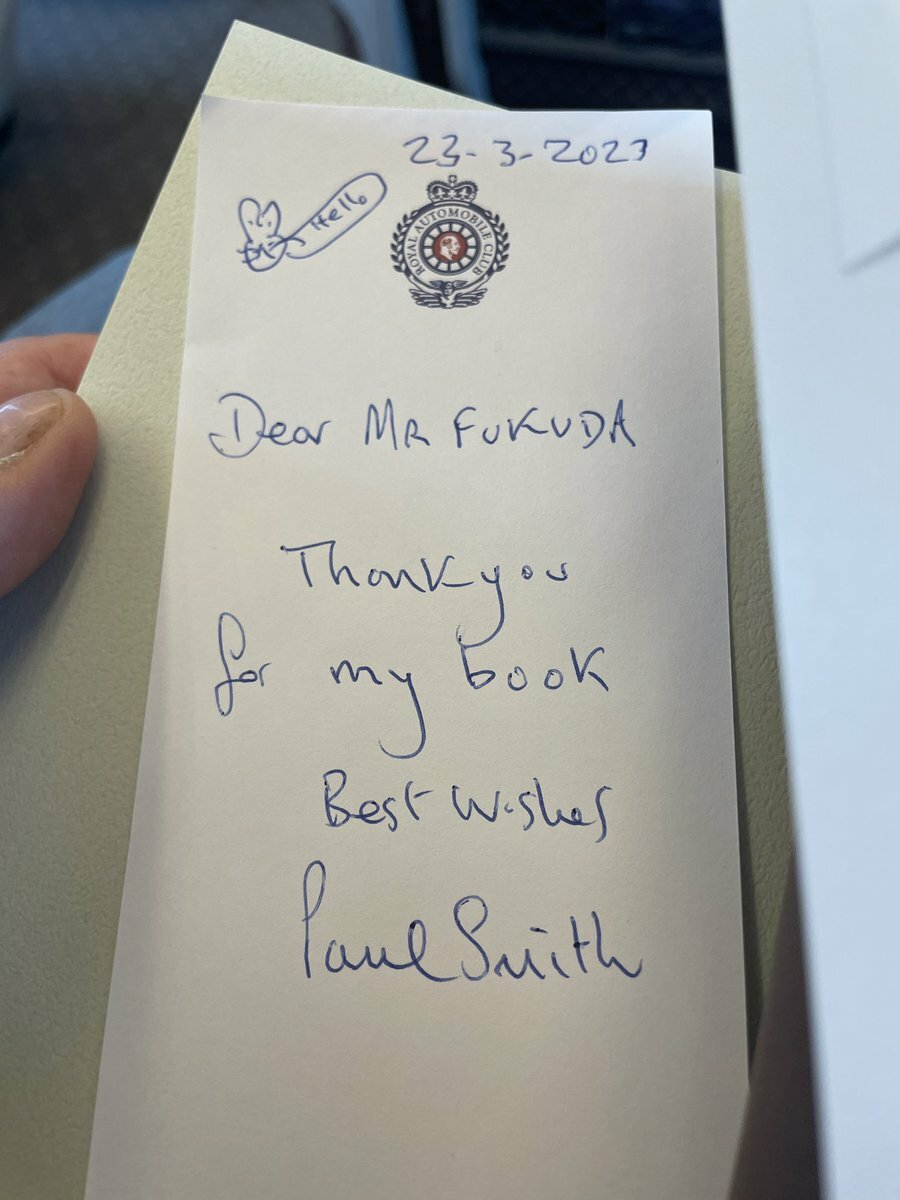 23-3-2023
Hello
ROYAL AUTOMOBILE CLUB
Dear MR FUKUDA
Thank you
for my book
Best Wishes
Paul Smith